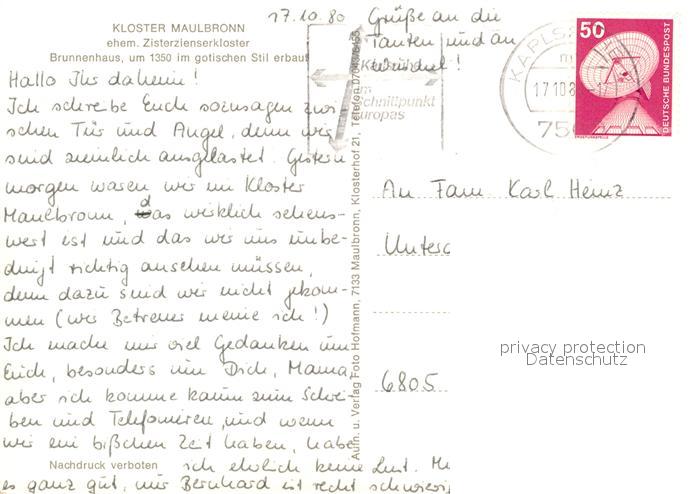 KLOSTER MAULBRONN
ehem. Zisterzienserkloster
Brunnenhaus, um 1350 im gotischen Stil erbaut
17.10.80
Grüße an die
Tanten und an
Hallo Ihr daheim!
Ich schreibe Euch sozusagen zwi-
schen Tür und Angel, denn wir
sind ziemlich ausgelastet. Gestern
morgen waren wir im Kloster
Maulbronn, das wirklich sehens-
wert ist und das wir uns unbe-
dingt richtig ansehen müssen,
denn dazu sind wir nicht gekom-
men (wir Betreuer meine ich!)
Ich mache mir viel Gedanken um
Euch, besonders um Dich, Mama,
aber ich komme kaum zum Schrei-
ben und Telefonieren, und wenn
wir ein bißchen Zeit haben, habe
ich ehrlich keine Lust.
es ganz gut, nur Bernhard ist recht schwierig
Nachdruck verboten
Aufn. u. Verlag Foto Hofmann, 7133 Maulbronn, Klosterhof 21, Telefon
im
Schnittpunkt
Europas
KARLS
17.10.8
75
50
DEUTSCHE BUNDESPOST
ERDFUNKSTELLE
An Fam. Karl Heinz
Unter
6805
privacy protection
Datenschutz